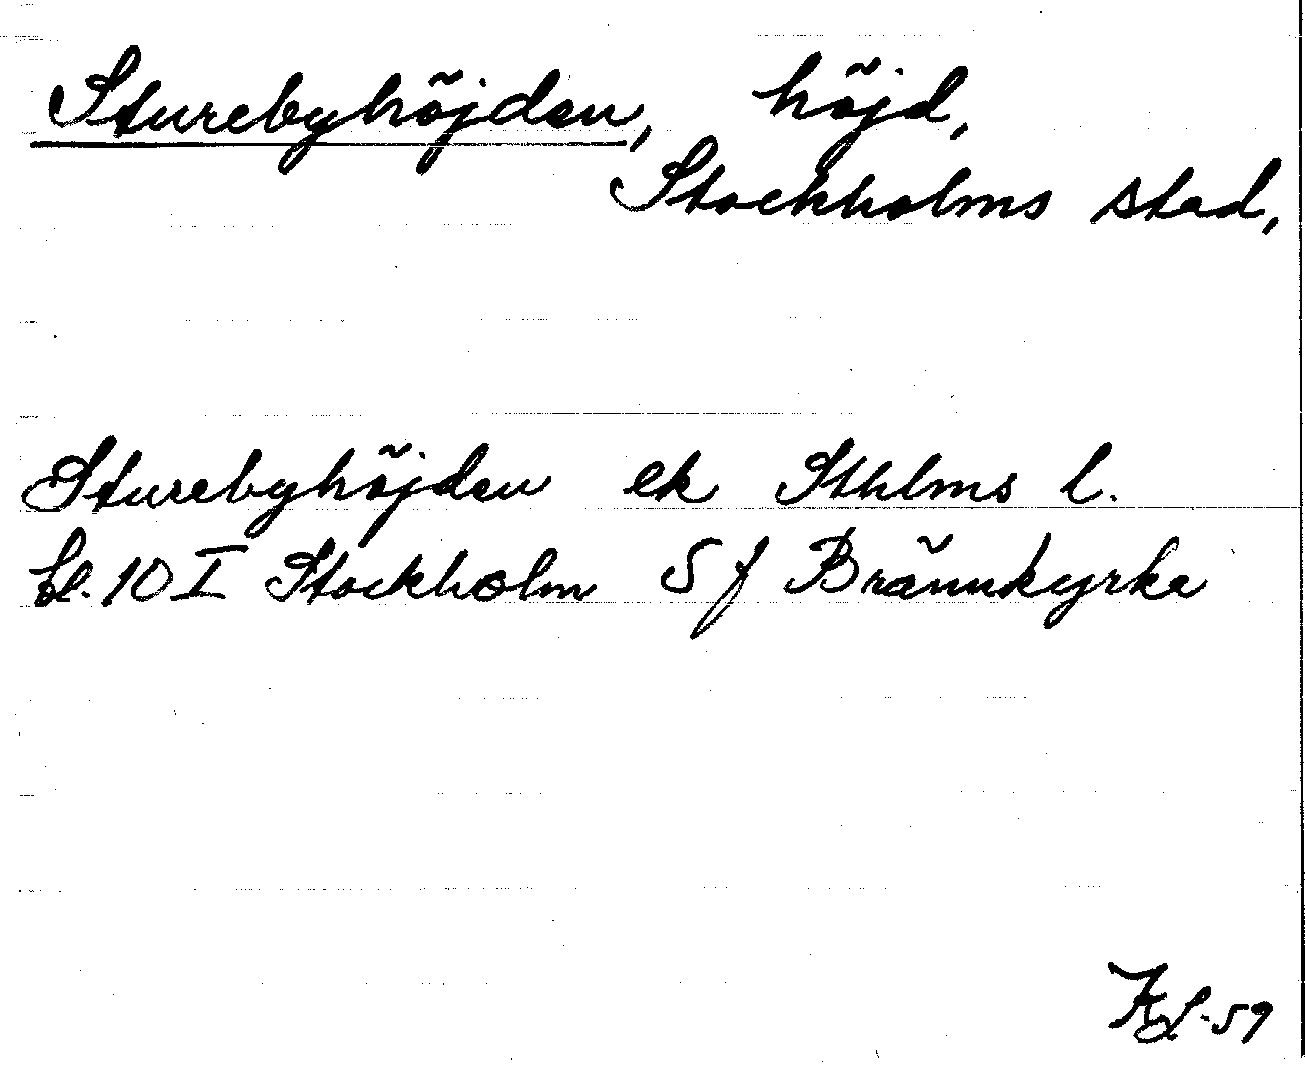 Sturebyhöjden, höjd,
Stockholms stad,
Sturebyhöjden ek Sthlms l.
bl. 10 I Stockholm S f Brännkyrka